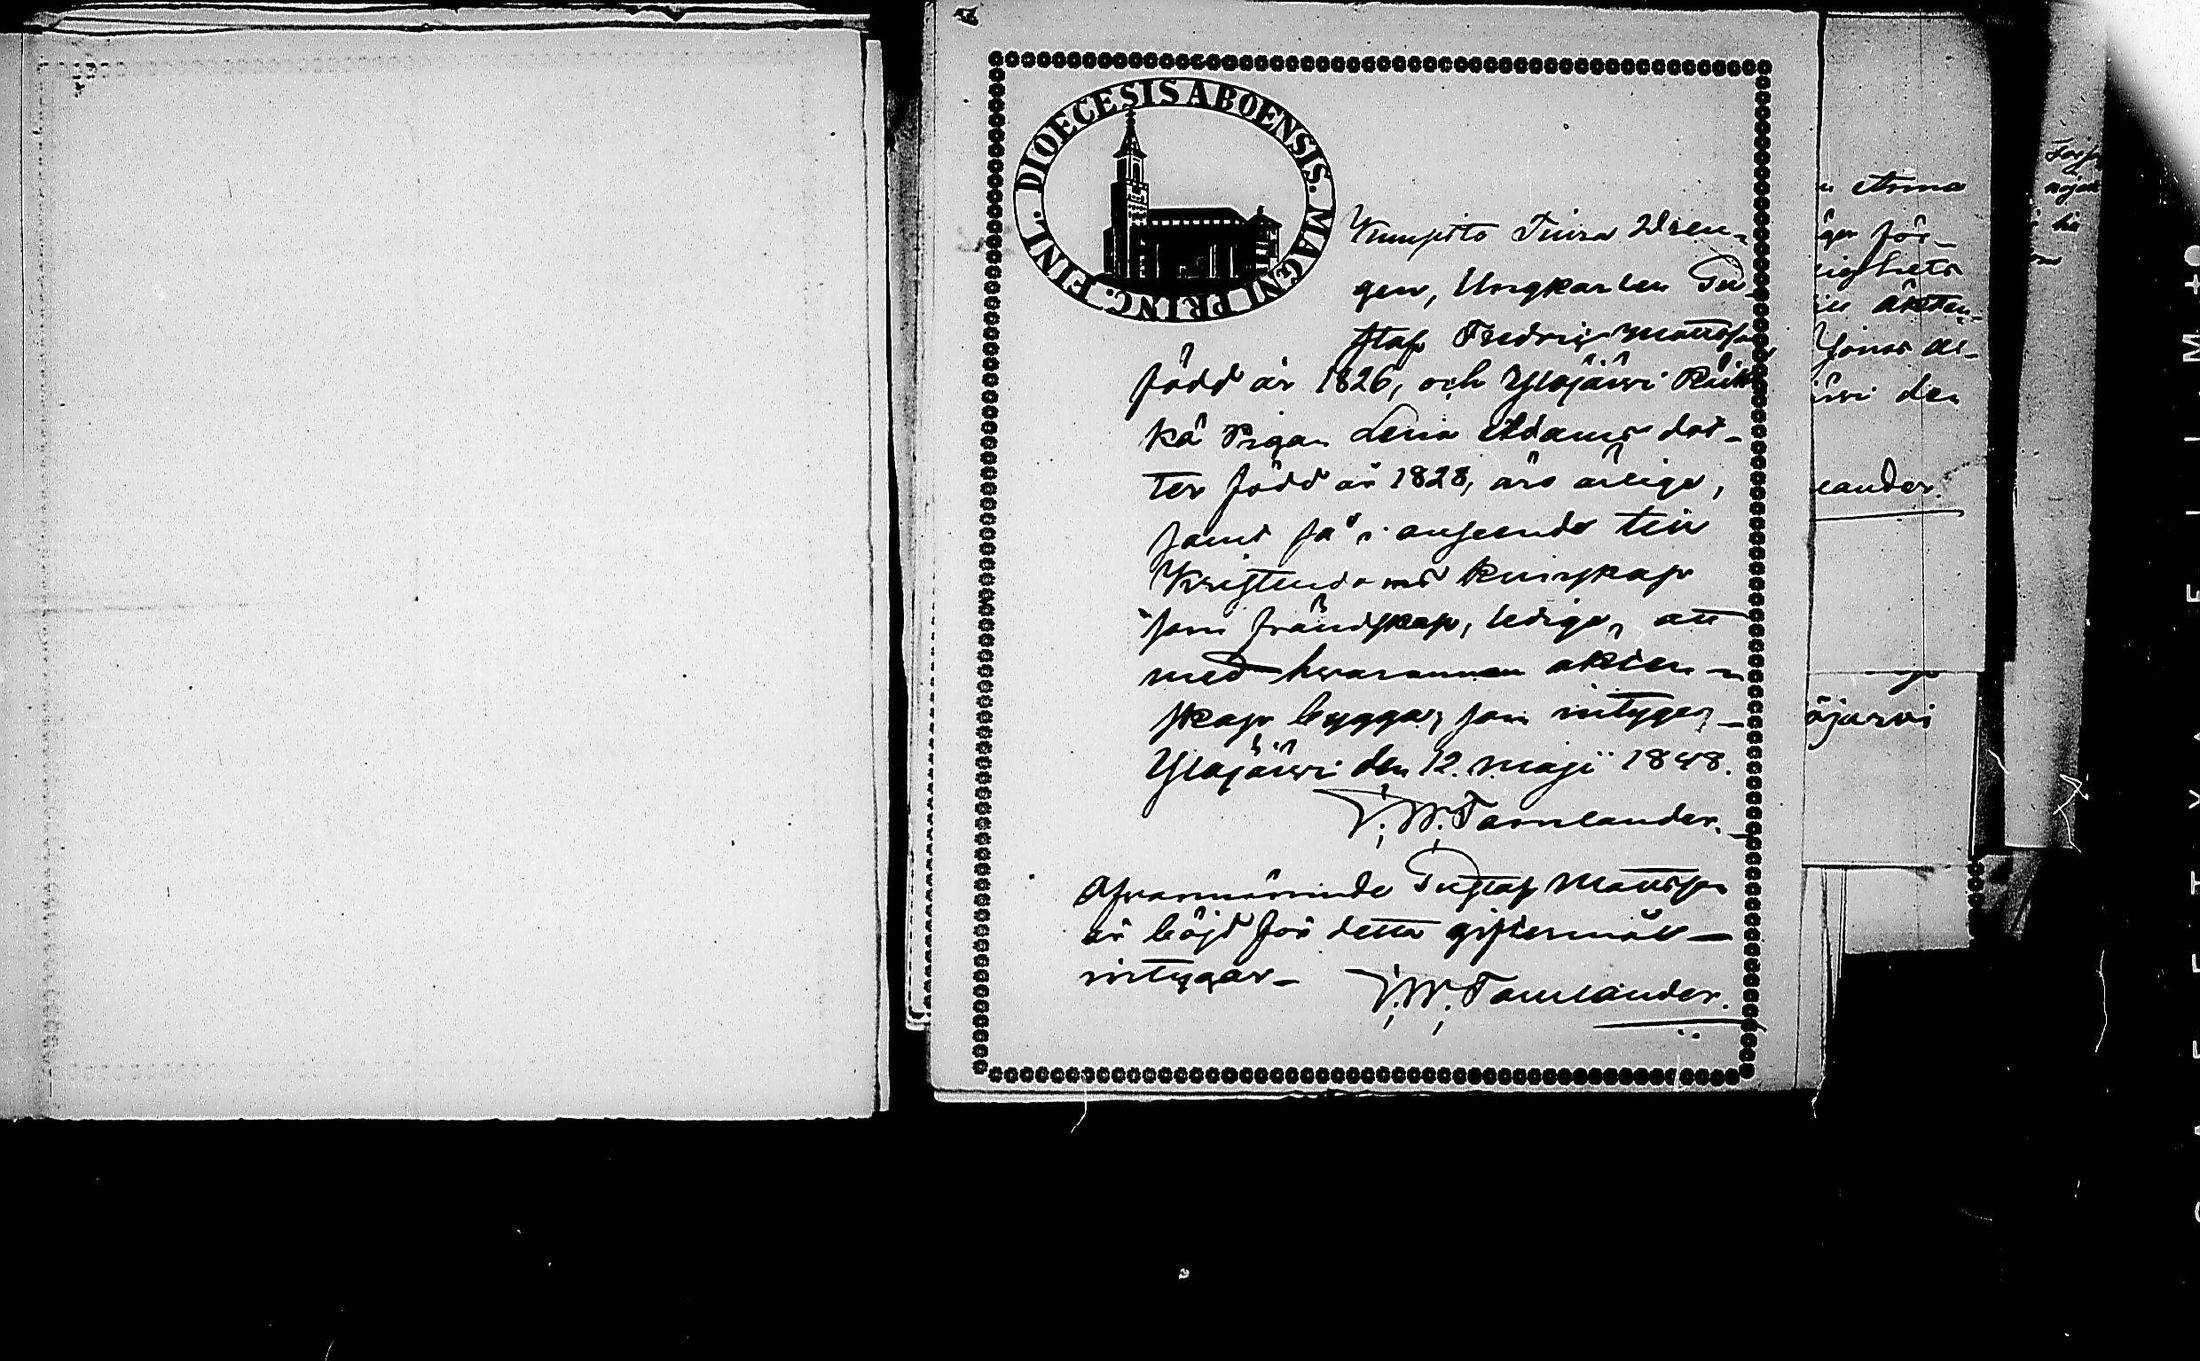 DIOECESIS ABOENSIS. MAGNI PRINC. FINL.
Kumpito Tiura Dren-
gen, Ungkarlen Gu-
staf Fredric Mattsson
född år 1826, och Ylöjärvi
kä Pigan Lena Adams dot-
ter född år 1828, äro ärlige,
samt så i anseende till
Kristendoms kunskap
som frändskap, ledige, att
med hvarannan äkten-
skap bygga, som intygas,
Ylöjärvi den 12. Maji 1848.
F. W. Tamlander.
Ofvannämnde Gustaf Mattsson
är böjd för detta giftermål
intygar F. W. Tamlander.
Anna
för-
äkten-
den
lander.
öjärvi